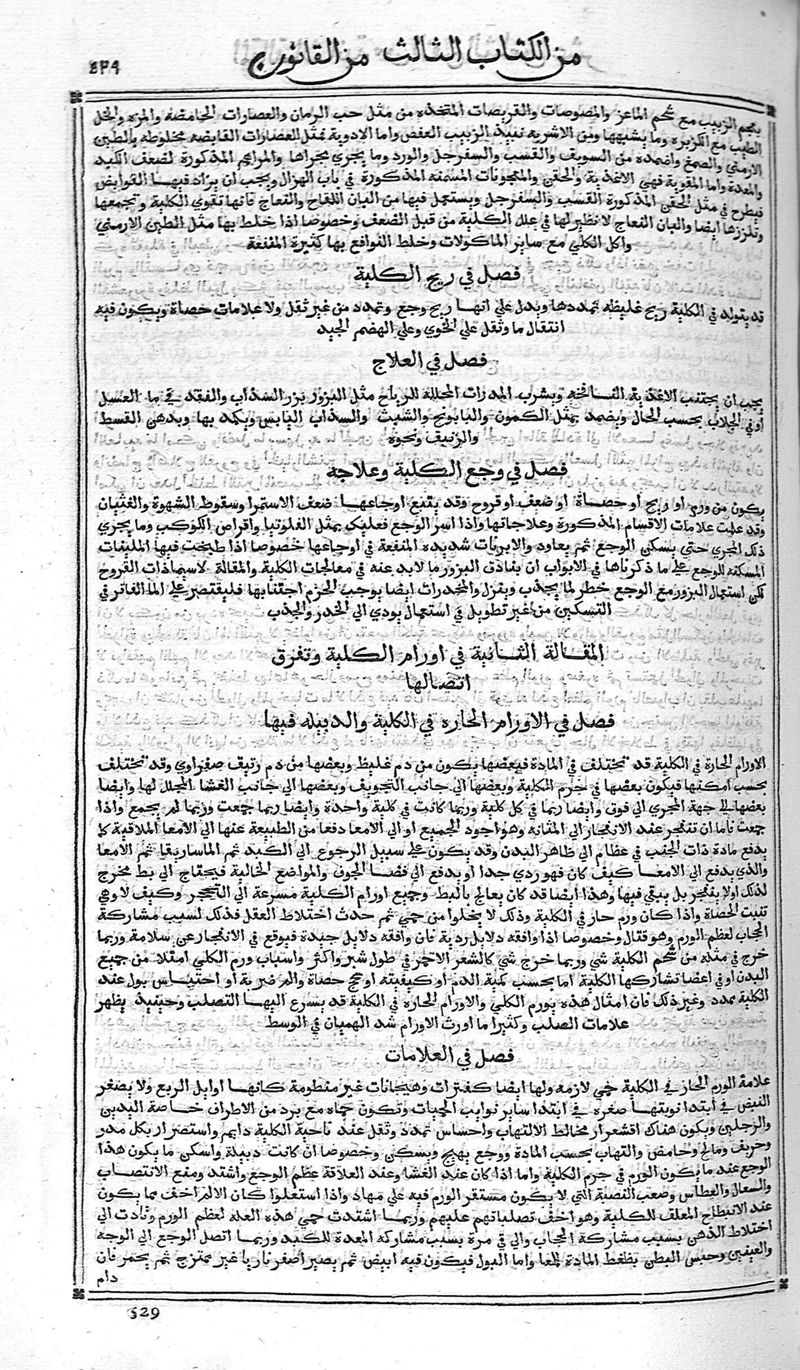 ٤٣٩ من الكتاب الثالث من القانون
بعجم الزبيب مع شحم الماعز والمصوصات والقريصات المتخذة من مثل حب الرمان والعصارات الحامضة والمزة والخل
الطيب مع الكزبرة وما يشبهها ومن الاشربة نبيذ الزبيب العفص واما الادوية فمثل العصارات القابضة مخلوطة بالطين
الارمني والصمغ واضمدة من السويف والقسب والسفرجل والورد وما يجري مجراها والمراهم المذكورة لضعف الكبد
والمعدة واما المقوية فهي الاغذية والحقن والمعجونات المسمنة المذكورة في باب الهزال ويجب ان يزاد فيها القوابض
فيطرح في مثل الحقن المذكورة القسب والسفرجل ويستعمل فيها من البان اللقاح والنعاج فانها تقوي الكلية وتجمعها
وتلززها ايضا والبان النعاج لا نظير لها في علل الكلية من قبل الضعف وخصوصا اذا خلط بها مثل الطين الارمني
واكل الكلي مع ساير الماكولات وخلط القوافع بها كثيرة المنفعة
فصل في ريح الكلية
قد يتولد في الكلية ريح غليظة تمددها ويدل علي انها ريح وجع وتمدد من غير ثقل ولا علامات حصاة ويكون فيه
انتقال ما وثقل علي الخوي وعلي الهضم الجيد
فصل في العلاج
يجب ان يجتنب الاغذية النافخة ويشرب المدرات المحللة للرياح مثل البزور بزر السذاب والفقد في ما العسل
او في الجلاب بحسب الحال ويضمد بمثل الكمون والبابونج والشبث والسذاب اليابس ويكمد بها وبدهن القسط
والزنبق ونحوه
فصل في وجع الكلية وعلاجه
يكون من ورم او ريح او حصاة او ضعف او قروح وقد يتبع اوجاعها ضعف الاستمرا وسقوط الشهوة والغثيان
وقد علمت علامات الاقسام المذكورة وعلاجاتها واذا اسر الوجع فعليك بمثل الفلونيا واقراص الكوكب وما يجري
ذلك المجري حتي يسكن الوجع ثم يعاود والابزنات شديدة المنفعة في اوجاعها خصوصا اذا طبخت فيها الملينات
المسكنة للوجع علي ما ذكرناها في الابواب ان بقاذق البزور ما لابد عنه في معالجات الكلية والمقالة لاسيما ذات القروح
لكن استعمال البزور مع الوجع خطر لما يجذب وينزل والمخدرات ايضا يوجب الحزم اجتنابها فليقتصر علي الما الفاتر في
التسكين من غير تطويل في استعمال يودي الي الخدر والجذب
المقالة الثانية في اورام الكلية وتفرق
اتصالها
فصل في الاورام الحارة في الكلية والدبيلة فيها
الاورام الحارة في الكلية قد تختلف في المادة فبعضها يكون من دم غليظ وبعضها من دم رقيق صفراوي وقد تختلف
بحسب امكنتها فيكون بعضها في جرم الكلية وبعضها الي جانب التجويف وبعضها الي جانب الغشا المجلل لها وايضا
بعضها الي جهة المجري الي فوق وايضا ربما في كل كلية وربما كانت في كلية واحدة وايضا ربما جمعت وربما لم يجمع واذا
جمعت فاما ان تنفجر عند الانفجار الي المثانة وهو اجود الجميع او الي الامعا دفعا من الطبيعة عنها الي الامعا الملاقية كما
يدفع مادة ذات الجنب في عظام الي ظاهر البدن وقد يكون علي سبيل الرجوع الي الكبد ثم الماساريقا ثم الامعا
والذي يدفع الي الامعا كيف كان فهو ردي جدا او يدفع الي فضا الجوف والمواضع الخالية فيحتاج الي بط مخرج
لذلك او لا ينفجر بل يبقي فيها وهذا ايضا قد كان يعالج بالبط وجميع اورام الكلية مسرعة الي التحجر وكيف لا وهي
تنبت الحصاة واذا كان ورم حار في الكلية وذلك لا يخلوا من حمي ثم حدث اختلاط العقل فذلك لسبب مشاركة
الحجاب لعظم الورم وهو قتال وخصوصا اذا وافقه دلايل ردية فان وافقه دلايل جيدة فيوقع في الانفجار عن سلامة وربما
خرج في مثله من شحم الكلية شي وربما خرج شي كالشعر الاحمر في طول شبر واكثر واسباب ورم الكلي امتلا من جميع
البدن او في اعضا تشاركها الكلية اما بحسب كمية الدم او كيفيته او سحج حصاة والم ضربة او احتباس بول عند
الكلية ممدد وغير ذلك فان امثال هذه يورم الكلي والاورام الحارة في الكلية قد يسرع اليها التصلب وحينيذ يظهر
علامات الصلب وكثيرا ما اورث الاورام شد الهميان في الوسط
فصل في العلامات
علامة الورم الحار في الكلية حمي لازمة ولها ايضا كفترات وهيجانات غير منظومة كانها اوايل الربع ولا يصغر
النبض في ابتدا نوبتها صغره في ابتدا ساير نوايب الحميات وتكون حماه مع برد من الاطراف خاصة اليدين
والرجلين ويكون هناك اقشعرار مخالط الالتهاب واحساس تمدد وثقل عند ناحية الكلية دايم واستضرار بكل مدر
وحريف ومالح وحامض والتهاب بحسب المادة ووجع يهيج ويسكن وخصوصا ان كانت دبيلة واسكن ما يكون هذا
الوجع عند ما يكون الورم في جرم الكلية واما اذا كان عند الغشا وعند العلاقة عظم الوجع واشتد ومنع الانتصاب
والسعال والعطاس وصعب النصبة التي لا يكون مستقر الورم فيه علي مهاد واذا استعلوا كان الالم اخف مما يكون
عند الانبطاح المعلف للكلية وهو اخف تصلباتهم عليهم وربما اشتدت حمي هذه العلة لعظم الورم وتادت الي
اختلاط الذهن بسبب مشاركة الحجاب والي في مرة بسبب مشاركة المعدة للكبد وربما اتصل الوجع الي الوجه
والعينين وحبس البطن بضغط المادة للمعا واما البول فيكون فيه ابيض ثم يصير اصفر ناريا غير ممتزج ثم يحمر فان
دام
529